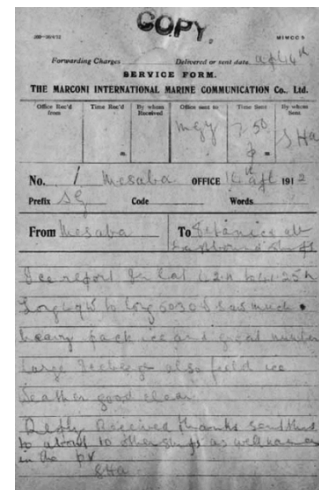 COPY
Forwarding Charges Delivered or sent date apl 14th
SERVICE FORM.
THE MARCONI INTERNATIONAL MARINE COMMUNICATION Co., Ltd.
Office Rec'd from Time Rec'd By whom Received Office sent to Time Sent By whom Sent
m MGY 7.50 p m SHa
No. 1 Mesaba OFFICE apl 1912
Prefix SG Code Words
From Mesaba To Titanic all
Eastbound Ships
Ice report In Lat 42N to 41.25N
Long 49W to Long 50.30W saw much
heavy pack ice and great number
large Icebergs also field ice
Weather good clear
Reply Received thanks sent this
to about 10 other ships as well
in the
SHa